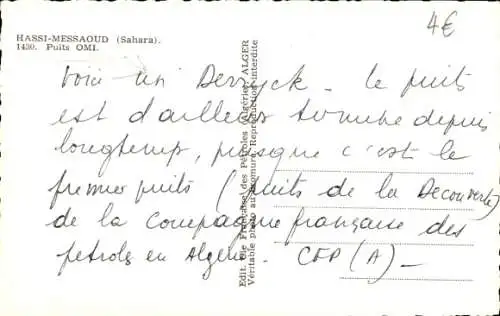 4€
HASSI-MESSAOUD (Sahara).
1430. Puits OM1.
Voici un Derryck - le puits
est d'ailleurs terminé depuis
longtemps, puisque c'est le
premier puits (puits de la Découverte)
de la compagnie française des
pétroles en Algérie - CFP (A) -
Edit. Cie Française des Pétroles (Algérie) ALGER
Véritable photo au bromure. Reproduction interdite